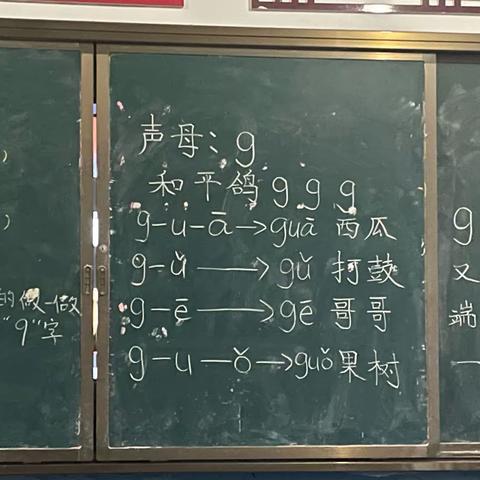 声母:g
和平鸽 g g g
g-u-ā→guā 西瓜
g-ǔ→gǔ 打鼓
g-ē→gē 哥哥
g-u-ǒ→guǒ果树
的做一做
"9"字
g
又
端